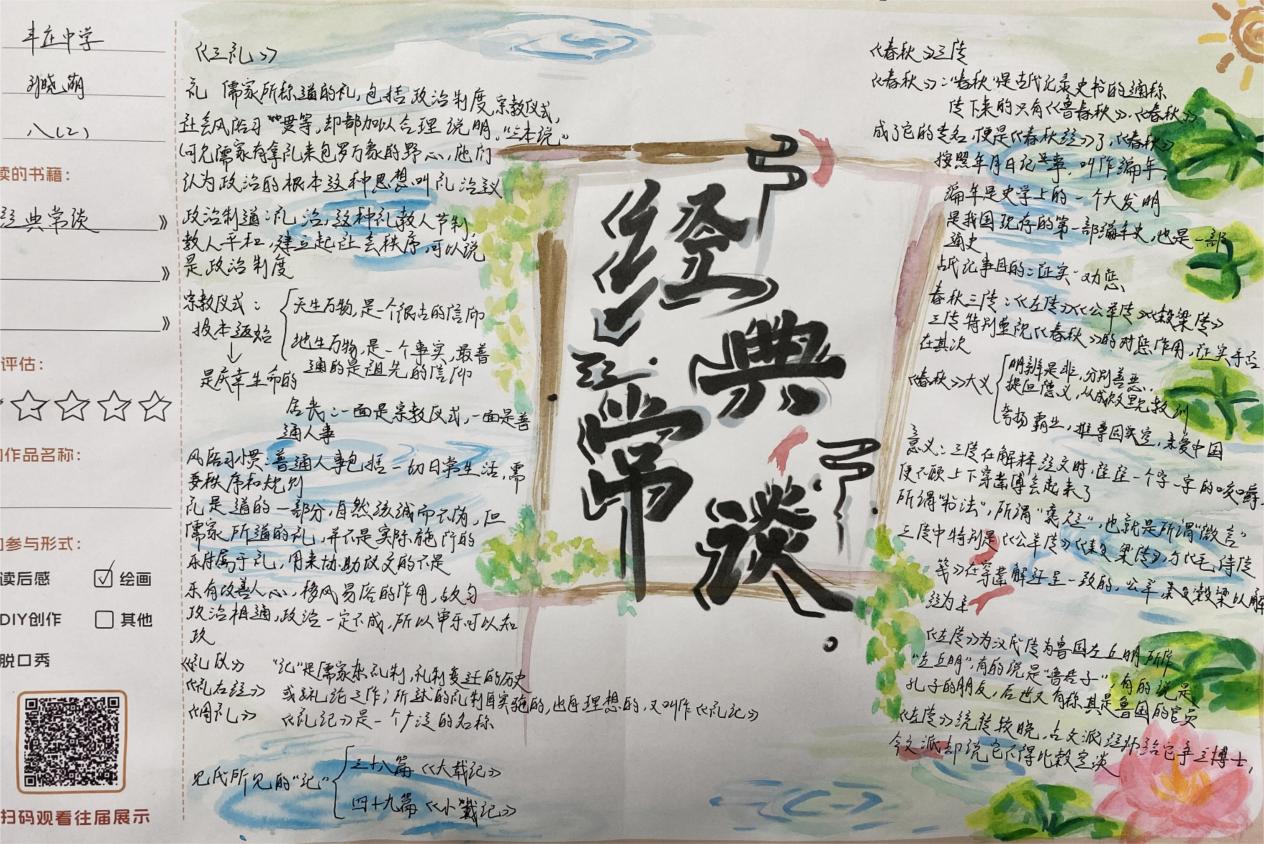 丰庄中学
八(2)
读的书籍：
经典常谈》
》
》
评估：
作品名称：
参与形式：
读后感 ☑ 绘画
DIY创作 □ 其他
脱口秀
扫码观看往届展示
《三礼》
礼 儒家所称道的礼，包括政治制度，宗教仪式，
社会风俗习惯等，却都加以合理说明，“三本说”
可见儒家有拿礼来包罗万象的野心，他们
认为政治的根本这种思想叫礼治议
政治制道：礼治，这种礼教人节制，
教人平和，建立起社会秩序，可以说
是政治制度
宗教仪式：
报本返始
↓
是庆幸生命的
天生万物，是一个很古的信仰
地生万物，是一个事实，最普
通的是祖先的信仰
居丧：一面是宗教仪式，一面是普
通人事
风俗习惯：普通人事包括一切日常生活，需
要秩序和规则
礼是道的一部分，自然该诚而不伪，但
儒家所道的礼，并不是实际施行的
乐附属于礼，用来协助仪文的不是
乐有改善人心，移风易俗的作用，故与
政治相通，政治一定不成，所以审乐可以知
政
《礼仪》 “记”是儒家杂礼制，礼制变迁的历史
或礼论之作；所述的礼制有实施的，也有理想的，又叫作《礼记》
《周礼》 《礼记》是一个广泛的名称
见氏所见的“记”
三十八篇《大戴记》
四十九篇《小戴记》
经典常谈
《春秋》三传
《春秋》：“春秋”是古代记录史书的通称
传下来的只有《鲁春秋》，《春秋》
成了它的专名，便是《春秋经》了，《春秋》
按照年月日记坐事，叫作编年
编年是史学上的一个大发明
是我国现存的第一部编年史，也是一部
通史
古代记事目的：证实 劝惩
春秋三传：《左传》《公羊传》《榖梁传》
三传特别重视《春秋》的对惩作用，证实予否
在其次
《春秋》大义
明辨是非，分别善恶，
提回德义，从成败里见教训
夸扬霸业，推尊周室，亲爱中国
意义：三传在解释经文时，往往一个字一字的咬嚼
便不顾上下穿凿傅会起来了
所谓“书法”，所谓“褒贬”，也就是所谓“微言”
三传中特别是《公羊传》《榖梁传》
笺》在穿凿解好是一致的，公羊
经为主
《左传》为汉代传为鲁国左丘明所作
“左丘明”，有的说是“鲁君子”，有的说是
孔子的朋友，后也又有称其是鲁国的史官
《左传》流传较晚，古文派经
今文派却说它不得比榖